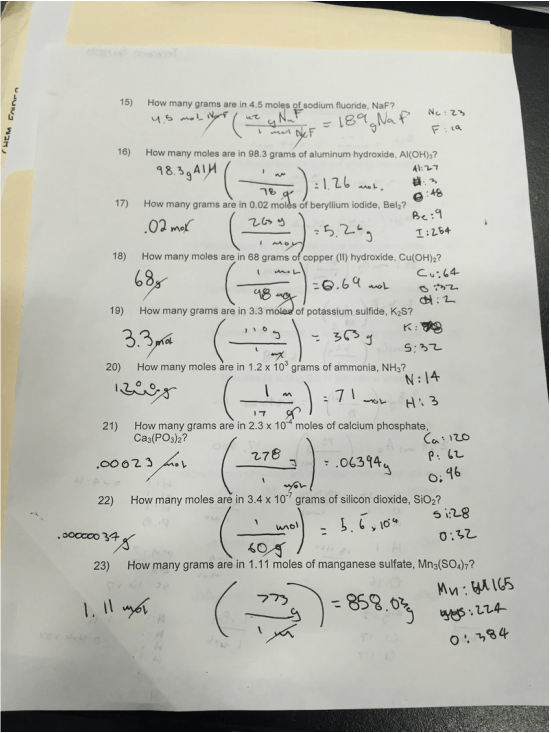 15) How many grams are in 4.5 moles of sodium fluoride, NaF?
4.5 mol NaF (42 gNaF / 1 mol NaF) = 189 gNaF
Na: 23
F: 19
16) How many moles are in 98.3 grams of aluminum hydroxide, Al(OH)₃?
98.3g AlH (1 m / 78 g) = 1.26 mol.
Al: 27
H: 3
O: 48
17) How many grams are in 0.02 moles of beryllium iodide, BeI₂?
.02 mol (263 g / 1 mol) = 5.26g
Be: 9
I: 254
18) How many moles are in 68 grams of copper (II) hydroxide, Cu(OH)₂?
68g (1 mol / 98 g) = 0.69 mol
Cu: 64
O: 32
H: 2
19) How many grams are in 3.3 moles of potassium sulfide, K₂S?
3.3 mol (110 g / 1 m) = 363 g
K:
S: 32
20) How many moles are in 1.2 x 10³ grams of ammonia, NH₃?
1200 g (1 m / 17 g) = 71 mol
N: 14
H: 3
21) How many grams are in 2.3 x 10⁻⁴ moles of calcium phosphate,
Ca₃(PO₃)₂?
.00023 mol (278 g / 1 mol) = .06394g
Ca: 120
P: 62
O: 96
22) How many moles are in 3.4 x 10⁻⁷ grams of silicon dioxide, SiO₂?
.00000034g (1 mol / 60 g) = 5.6 x 10⁻⁹
Si: 28
O: 32
23) How many grams are in 1.11 moles of manganese sulfate, Mn₃(SO₄)₇?
1.11 mol (773 g / 1 m) = 858.03g
Mn: 165
: 224
O: 384